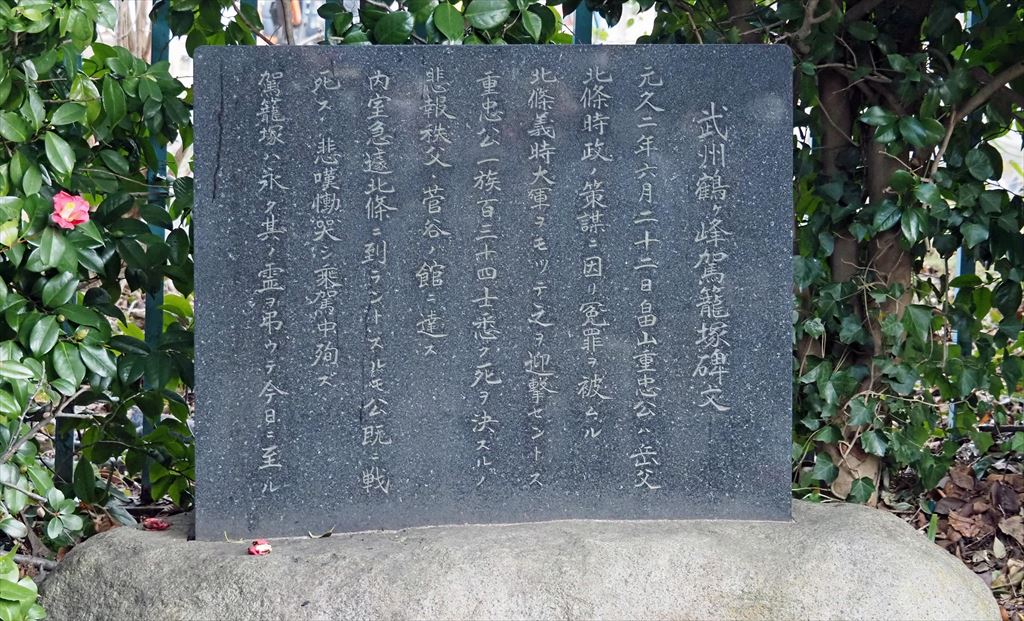 武州鶴ケ峰駕籠塚碑文
元久二年六月二十二日畠山重忠公ハ岳父
北條時政ノ策謀ニ因リ冤罪ヲ被ムル
北條義時大軍ヲモツテ之ヲ迎撃セントス
重忠公一族百三十四士悉ク死ヲ決スルノ
悲報秩父ノ菅谷ノ館ニ達ス
内室急遽北條ニ到ラントスルモ公既ニ戦
死ス 悲嘆慟哭シ乘駕中殉ズ
駕籠塚ハ永ク其ノ霊ヲ弔ウテ今日ニ至ル